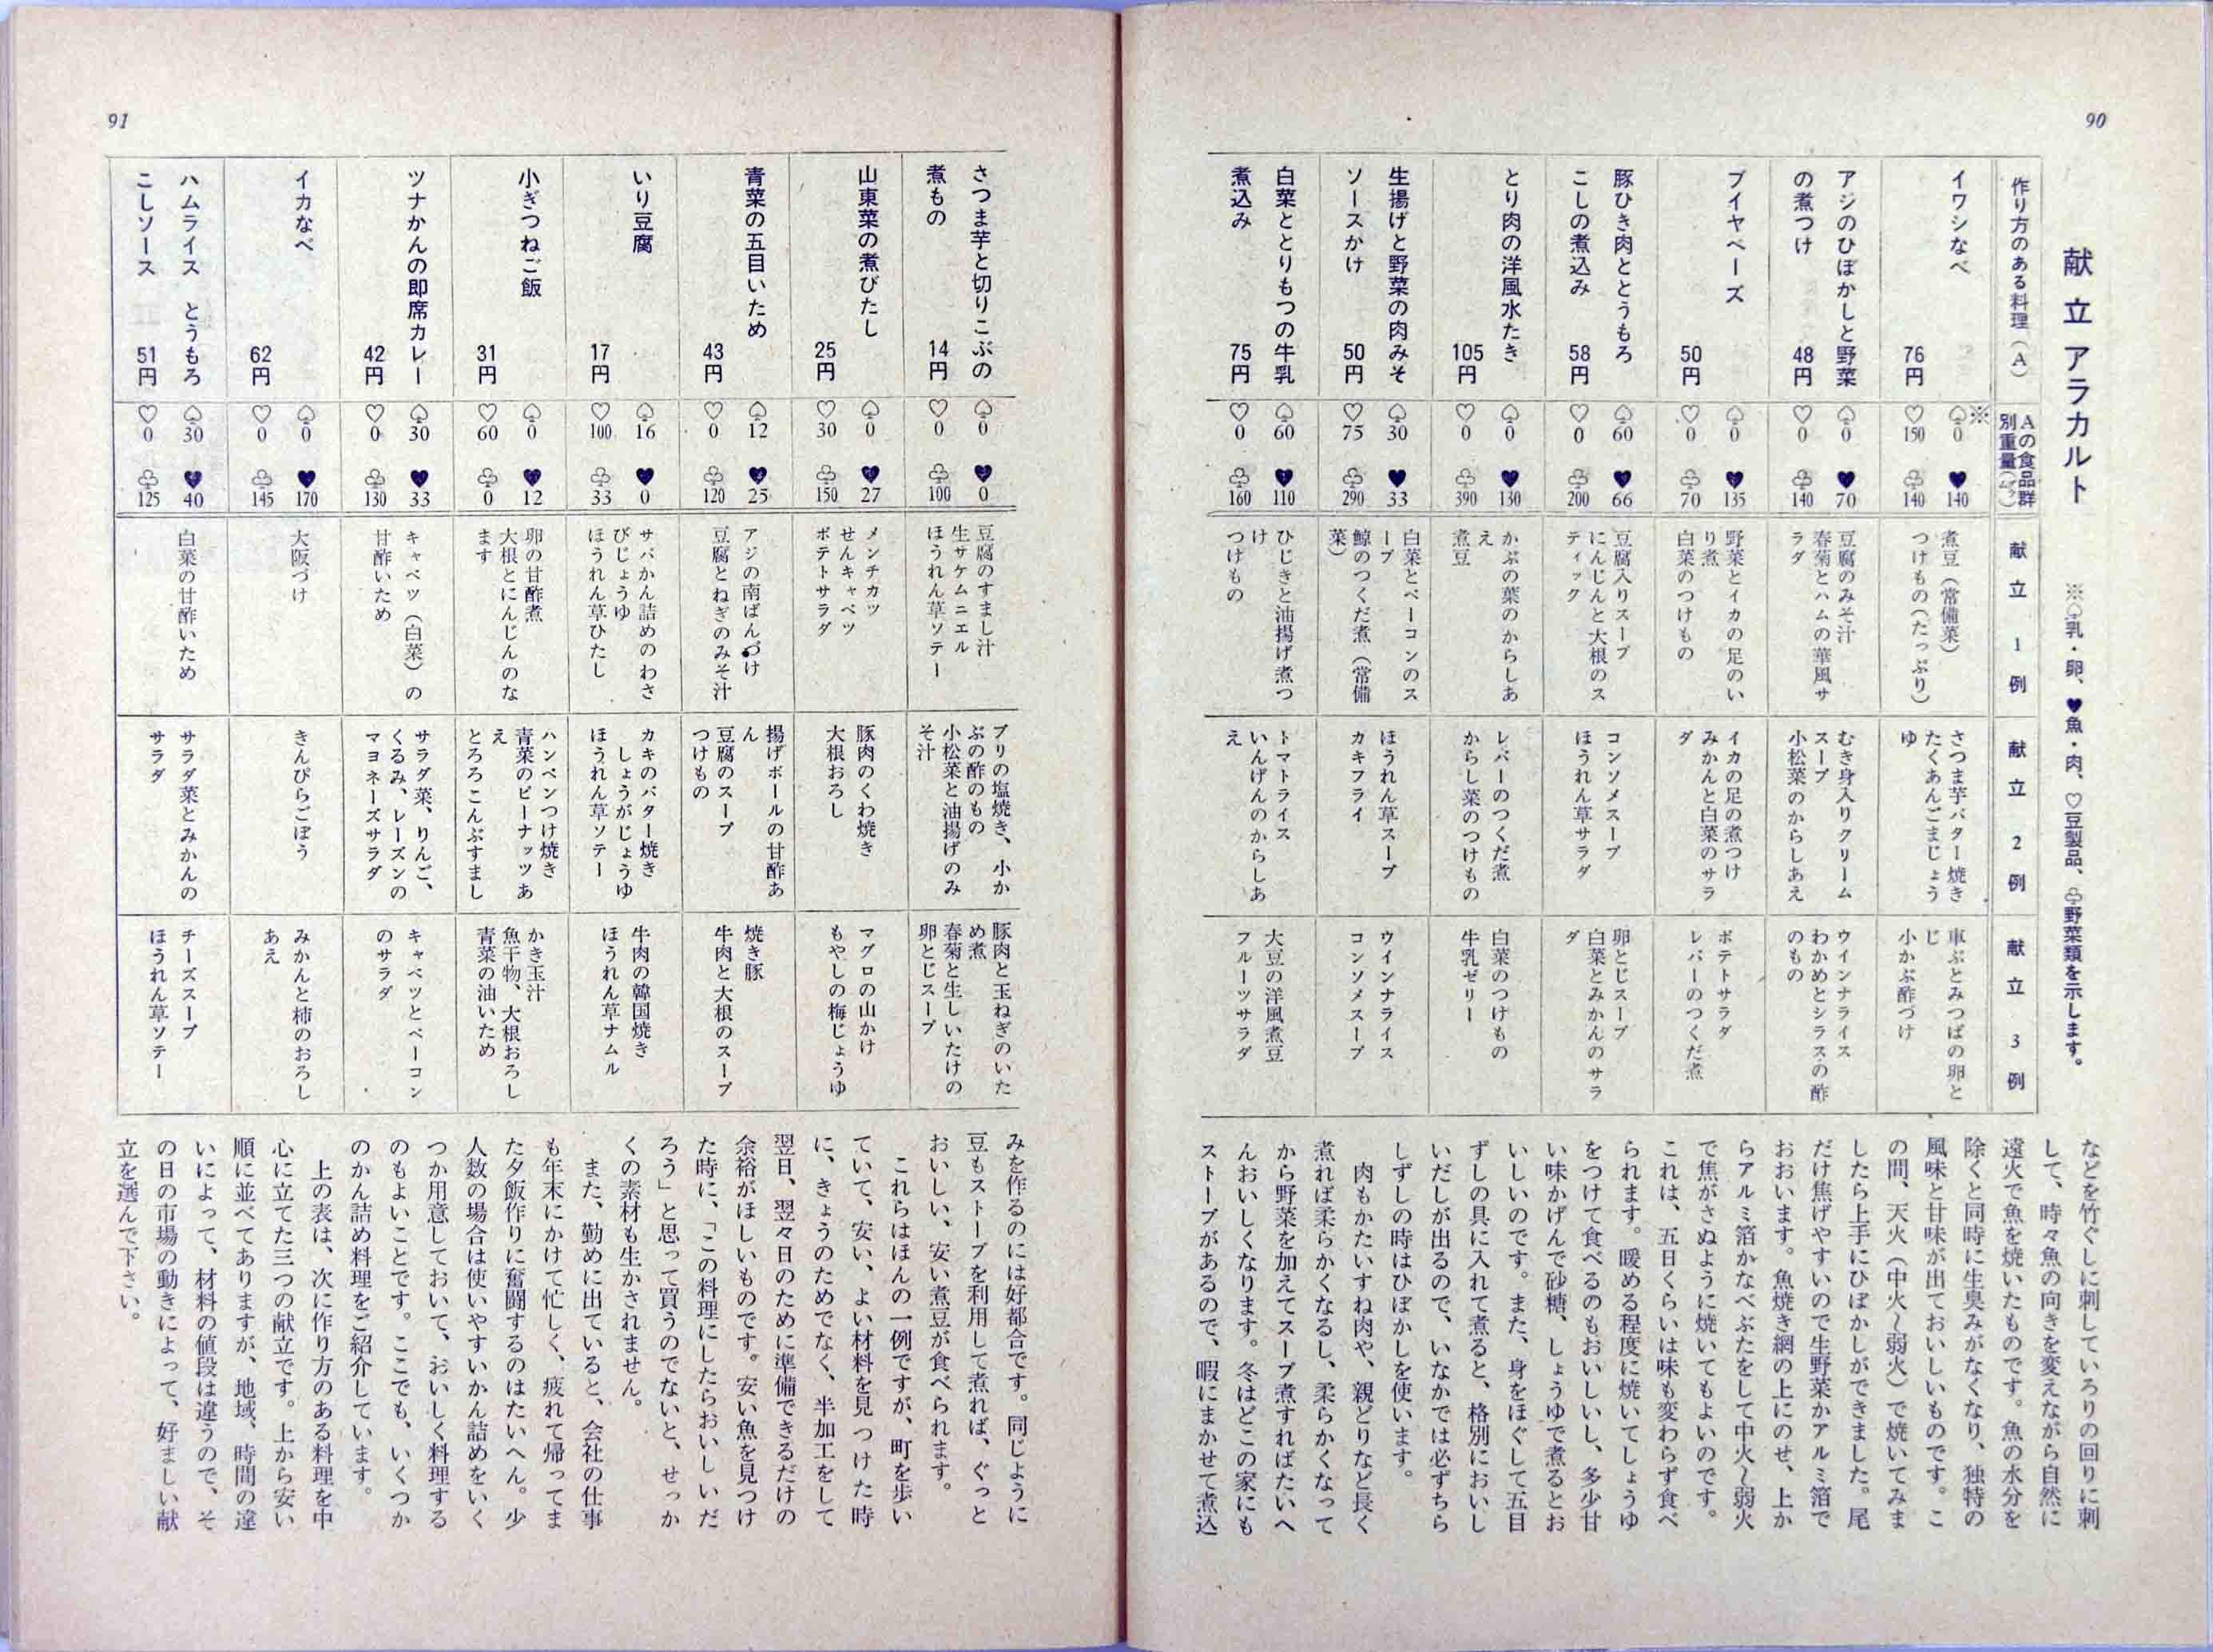 90
献立アラカルト
※♤乳・卵、♥魚・肉、♡豆製品、♧野菜類を示します。
作り方のある料理（A）
Aの食品群
別重量（㌘）
献立1例
献立2例
献立3例
イワシなべ
76円
※
♤0 ♥140
♡150 ♧140
煮豆（常備菜）
つけもの（たっぷり）
さつま芋バター焼き
たくあんごまじょう
ゆ
車ぶとみつばの卵と
じ
小かぶ酢づけ
アジのひぼかしと野菜
の煮つけ
48円
♤0 ♥70
♡0 ♧140
豆腐のみそ汁
春菊とハムの華風サ
ラダ
むき身入りクリーム
スープ
小松菜のからしあえ
ウインナライス
わかめとシラスの酢
のもの
ブイヤベーズ
50円
♤0 ♥135
♡0 ♧70
野菜とイカの足のい
り煮
白菜のつけもの
イカの足の煮つけ
みかんと白菜のサラ
ダ
ポテトサラダ
レバーのつくだ煮
豚ひき肉ととうもろ
こしの煮込み
58円
♤60 ♥66
♡0 ♧200
豆腐入りスープ
にんじんと大根のス
ティック
コンソメスープ
ほうれん草サラダ
卵とじスープ
白菜とみかんのサラ
ダ
とり肉の洋風水たき
105円
♤0 ♥130
♡0 ♧390
かぶの葉のからしあ
え
煮豆
レバーのつくだ煮
からし菜のつけもの
白菜のつけもの
牛乳ゼリー
生揚げと野菜の肉みそ
ソースかけ
50円
♤30 ♥33
♡75 ♧290
白菜とベーコンのス
ープ
鯨のつくだ煮（常備
菜）
ほうれん草スープ
カキフライ
ウインナライス
コンソメスープ
白菜ととりもつの牛乳
煮込み
75円
♤60 ♥110
♡0 ♧160
ひじきと油揚げ煮つ
け
つけもの
トマトライス
いんげんのからしあ
え
大豆の洋風煮豆
フルーツサラダ
などを竹ぐしに刺していろりの回りに刺
して、時々魚の向きを変えながら自然に
遠火で魚を焼いたものです。魚の水分を
除くと同時に生臭みがなくなり、独特の
風味と甘味が出ておいしいものです。こ
の間、天火（中火〜弱火）で焼いてみま
したら上手にひぼかしができました。尾
だけ焦げやすいので生野菜かアルミ箔で
おおいます。魚焼き網の上にのせ、上か
らアルミ箔かなべぶたをして中火〜弱火
で焦がさぬように焼いてもよいのです。
これは、五日くらいは味も変わらず食べ
られます。暖める程度に焼いてしょうゆ
をつけて食べるのもおいしいし、多少甘
い味かげんで砂糖、しょうゆで煮るとお
いしいのです。また、身をほぐして五目
ずしの具に入れて煮ると、格別においし
いだしが出るので、いなかでは必ずちら
しずしの時はひぼかしを使います。
肉もかたいすね肉や、親どりなど長く
煮れば柔らかくなるし、柔らかくなって
から野菜を加えてスープ煮すればたいへ
んおいしくなります。冬はどこの家にも
ストーブがあるので、暇にまかせて煮込
91
さつま芋と切りこぶの
煮もの
14円
♤0 ♥0
♡0 ♧100
豆腐のすまし汁
生サケムニエル
ほうれん草ソテー
ブリの塩焼き、小か
ぶの酢のもの
小松菜と油揚げのみ
そ汁
豚肉と玉ねぎのいた
め煮
春菊と生しいたけの
卵とじスープ
山東菜の煮びたし
25円
♤0 ♥27
♡30 ♧150
メンチカツ
せんキャベツ
ポテトサラダ
豚肉のくわ焼き
大根おろし
マグロの山かけ
もやしの梅じょうゆ
青菜の五目いため
43円
♤12 ♥25
♡0 ♧120
アジの南ばんづけ
豆腐とねぎのみそ汁
揚げボールの甘酢あ
ん
豆腐のスープ
つけもの
焼き豚
牛肉と大根のスープ
いり豆腐
17円
♤16 ♥0
♡100 ♧33
サバかん詰めのわさ
びじょうゆ
ほうれん草ひたし
カキのバター焼き
しょうがじょうゆ
ほうれん草ソテー
牛肉の韓国焼き
ほうれん草ナムル
小ぎつねご飯
31円
♤0 ♥12
♡60 ♧0
卵の甘酢煮
大根とにんじんのな
ます
ハンペンつけ焼き
青菜のピーナッツあ
え
とろろこんぶすまし
かき玉汁
魚干物、大根おろし
青菜の油いため
ツナかんの即席カレー
42円
♤30 ♥33
♡0 ♧130
キャベツ（白菜）の
甘酢いため
サラダ菜、りんご、
くるみ、レーズンの
マヨネーズサラダ
キャベツとベーコン
のサラダ
イカなべ
62円
♤0 ♥170
♡0 ♧145
大阪づけ
きんぴらごぼう
みかんと柿のおろし
あえ
ハムライス　とうもろ
こしソース
51円
♤30 ♥40
♡0 ♧125
白菜の甘酢いため
サラダ菜とみかんの
サラダ
チーズスープ
ほうれん草ソテー
みを作るのには好都合です。同じように
豆もストーブを利用して煮れば、ぐっと
おいしい、安い煮豆が食べられます。
これらはほんの一例ですが、町を歩い
ていて、安い、よい材料を見つけた時
に、きょうのためでなく、半加工をして
翌日、翌々日のために準備できるだけの
余裕がほしいものです。安い魚を見つけ
た時に、「この料理にしたらおいしいだ
ろう」と思って買うのでないと、せっか
くの素材も生かされません。
また、勤めに出ていると、会社の仕事
も年末にかけて忙しく、疲れて帰ってま
た夕飯作りに奮闘するのはたいへん。少
人数の場合は使いやすいかん詰めをいく
つか用意しておいて、おいしく料理する
のもよいことです。ここでも、いくつか
のかん詰め料理をご紹介しています。
上の表は、次に作り方のある料理を中
心に立てた三つの献立です。上から安い
順に並べてありますが、地域、時間の違
いによって、材料の値段は違うので、そ
の日の市場の動きによって、好ましい献
立を選んで下さい。